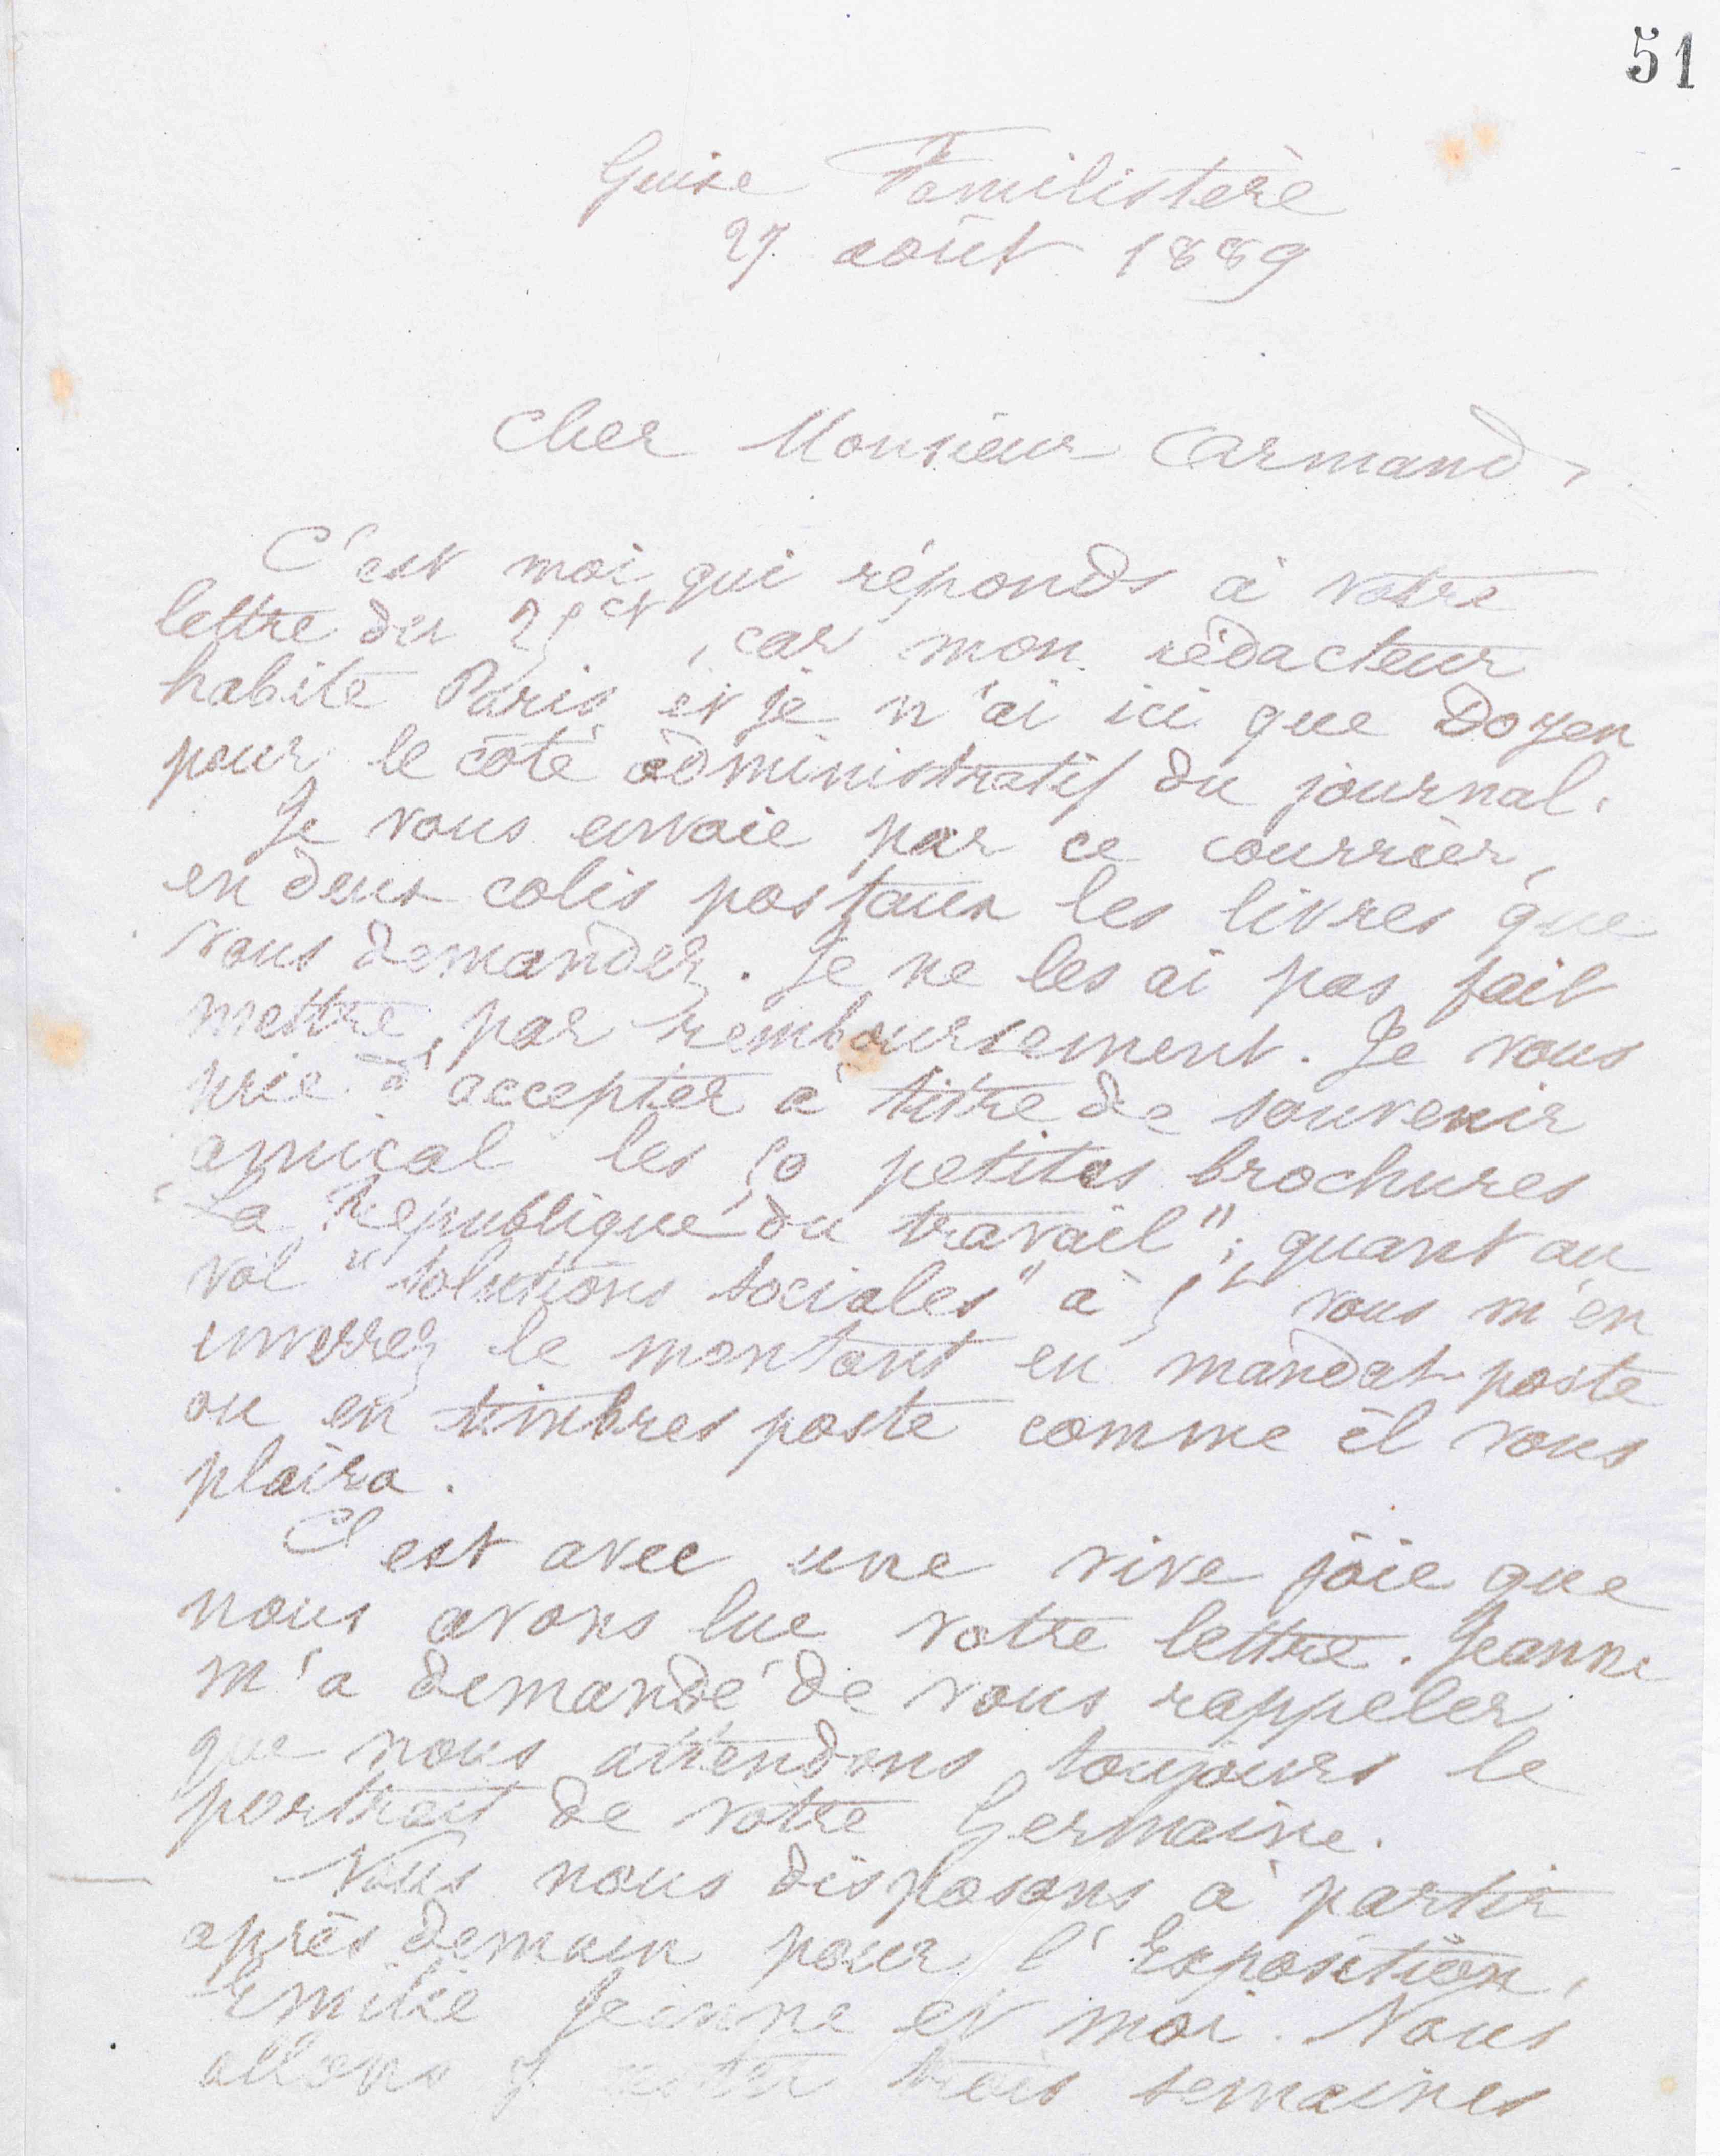 51
Guise Familistère
27 août 1889
Cher Monsieur Armand,
C'est moi qui réponds à votre
lettre du 25 ct, car mon rédacteur
habite Paris et je n'ai ici que Doyen
pour le côté administratif du journal.
Je vous envoie par ce courrier,
en deux colis postaux les livres que
vous demandez. Je ne les ai pas fait
mettre par remboursement. Je vous
prie d'accepter à titre de souvenir
amical les 50 petites brochures
"La République du travail"; quant au
vol "Solutions sociales" à 5 f vous m'en
enverrez le montant en mandat-poste
ou en timbres poste comme il vous
plaira.
C'est avec une vive joie que
nous avons lue votre lettre. Jeanne
m'a demandé de vous rappeler
que nous attendons toujours le
portrait de votre Germaine.
Nous nous disposons à partir
après demain pour l'Exposition,
Emilie Jeanne et moi. Nous
allons y rester trois semaines